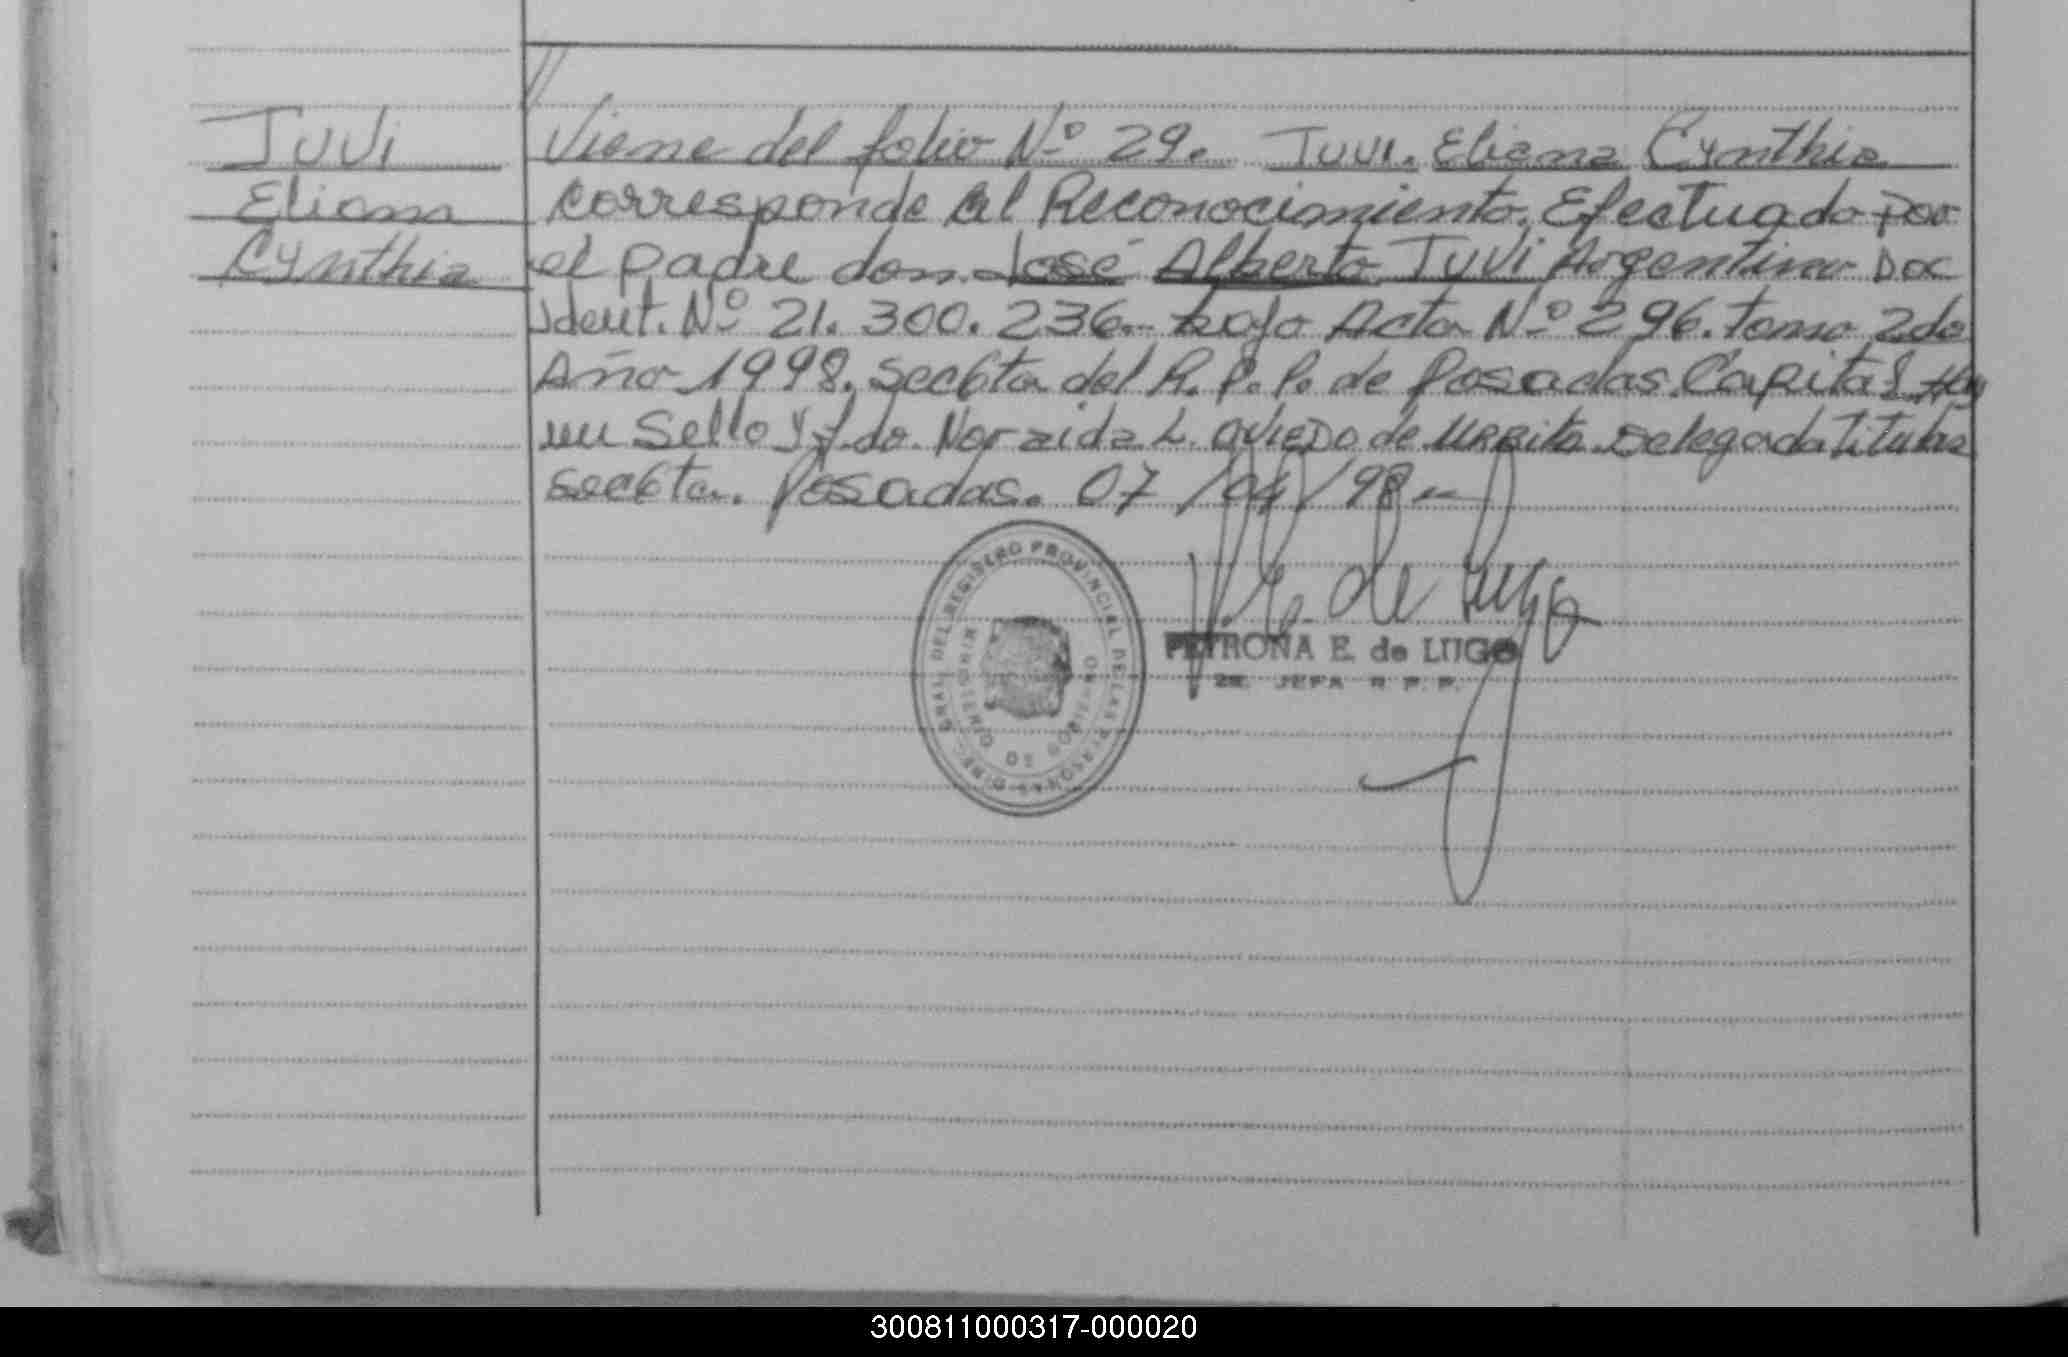 Juvi
Eliana
Cynthia
Viene del folio Nº 29. Juvi. Eliana Cynthia
corresponde al Reconocimiento. Efectuado Por
el Padre don José Alberto Juvi Argentino Doc
Ident. Nº 21.300.236.- bajo Acta Nº 296. tomo 2do
Año 1998. Sec 6ta del R. P. P. de Posadas Capital Hay
un Sello y fdo. Noraida L. Oviedo de Urbita Delegada titular
Sec 6ta. Posadas. 07/04/98
DIREC. GRAL DEL REGISTRO PROVINCIAL DE LAS PERSONAS
MINISTERIO DE GOBIERNO
P. E. de Lugo
PETRONA E. de LUGO
2a. JEFA R. P. P.
300811000317-000020